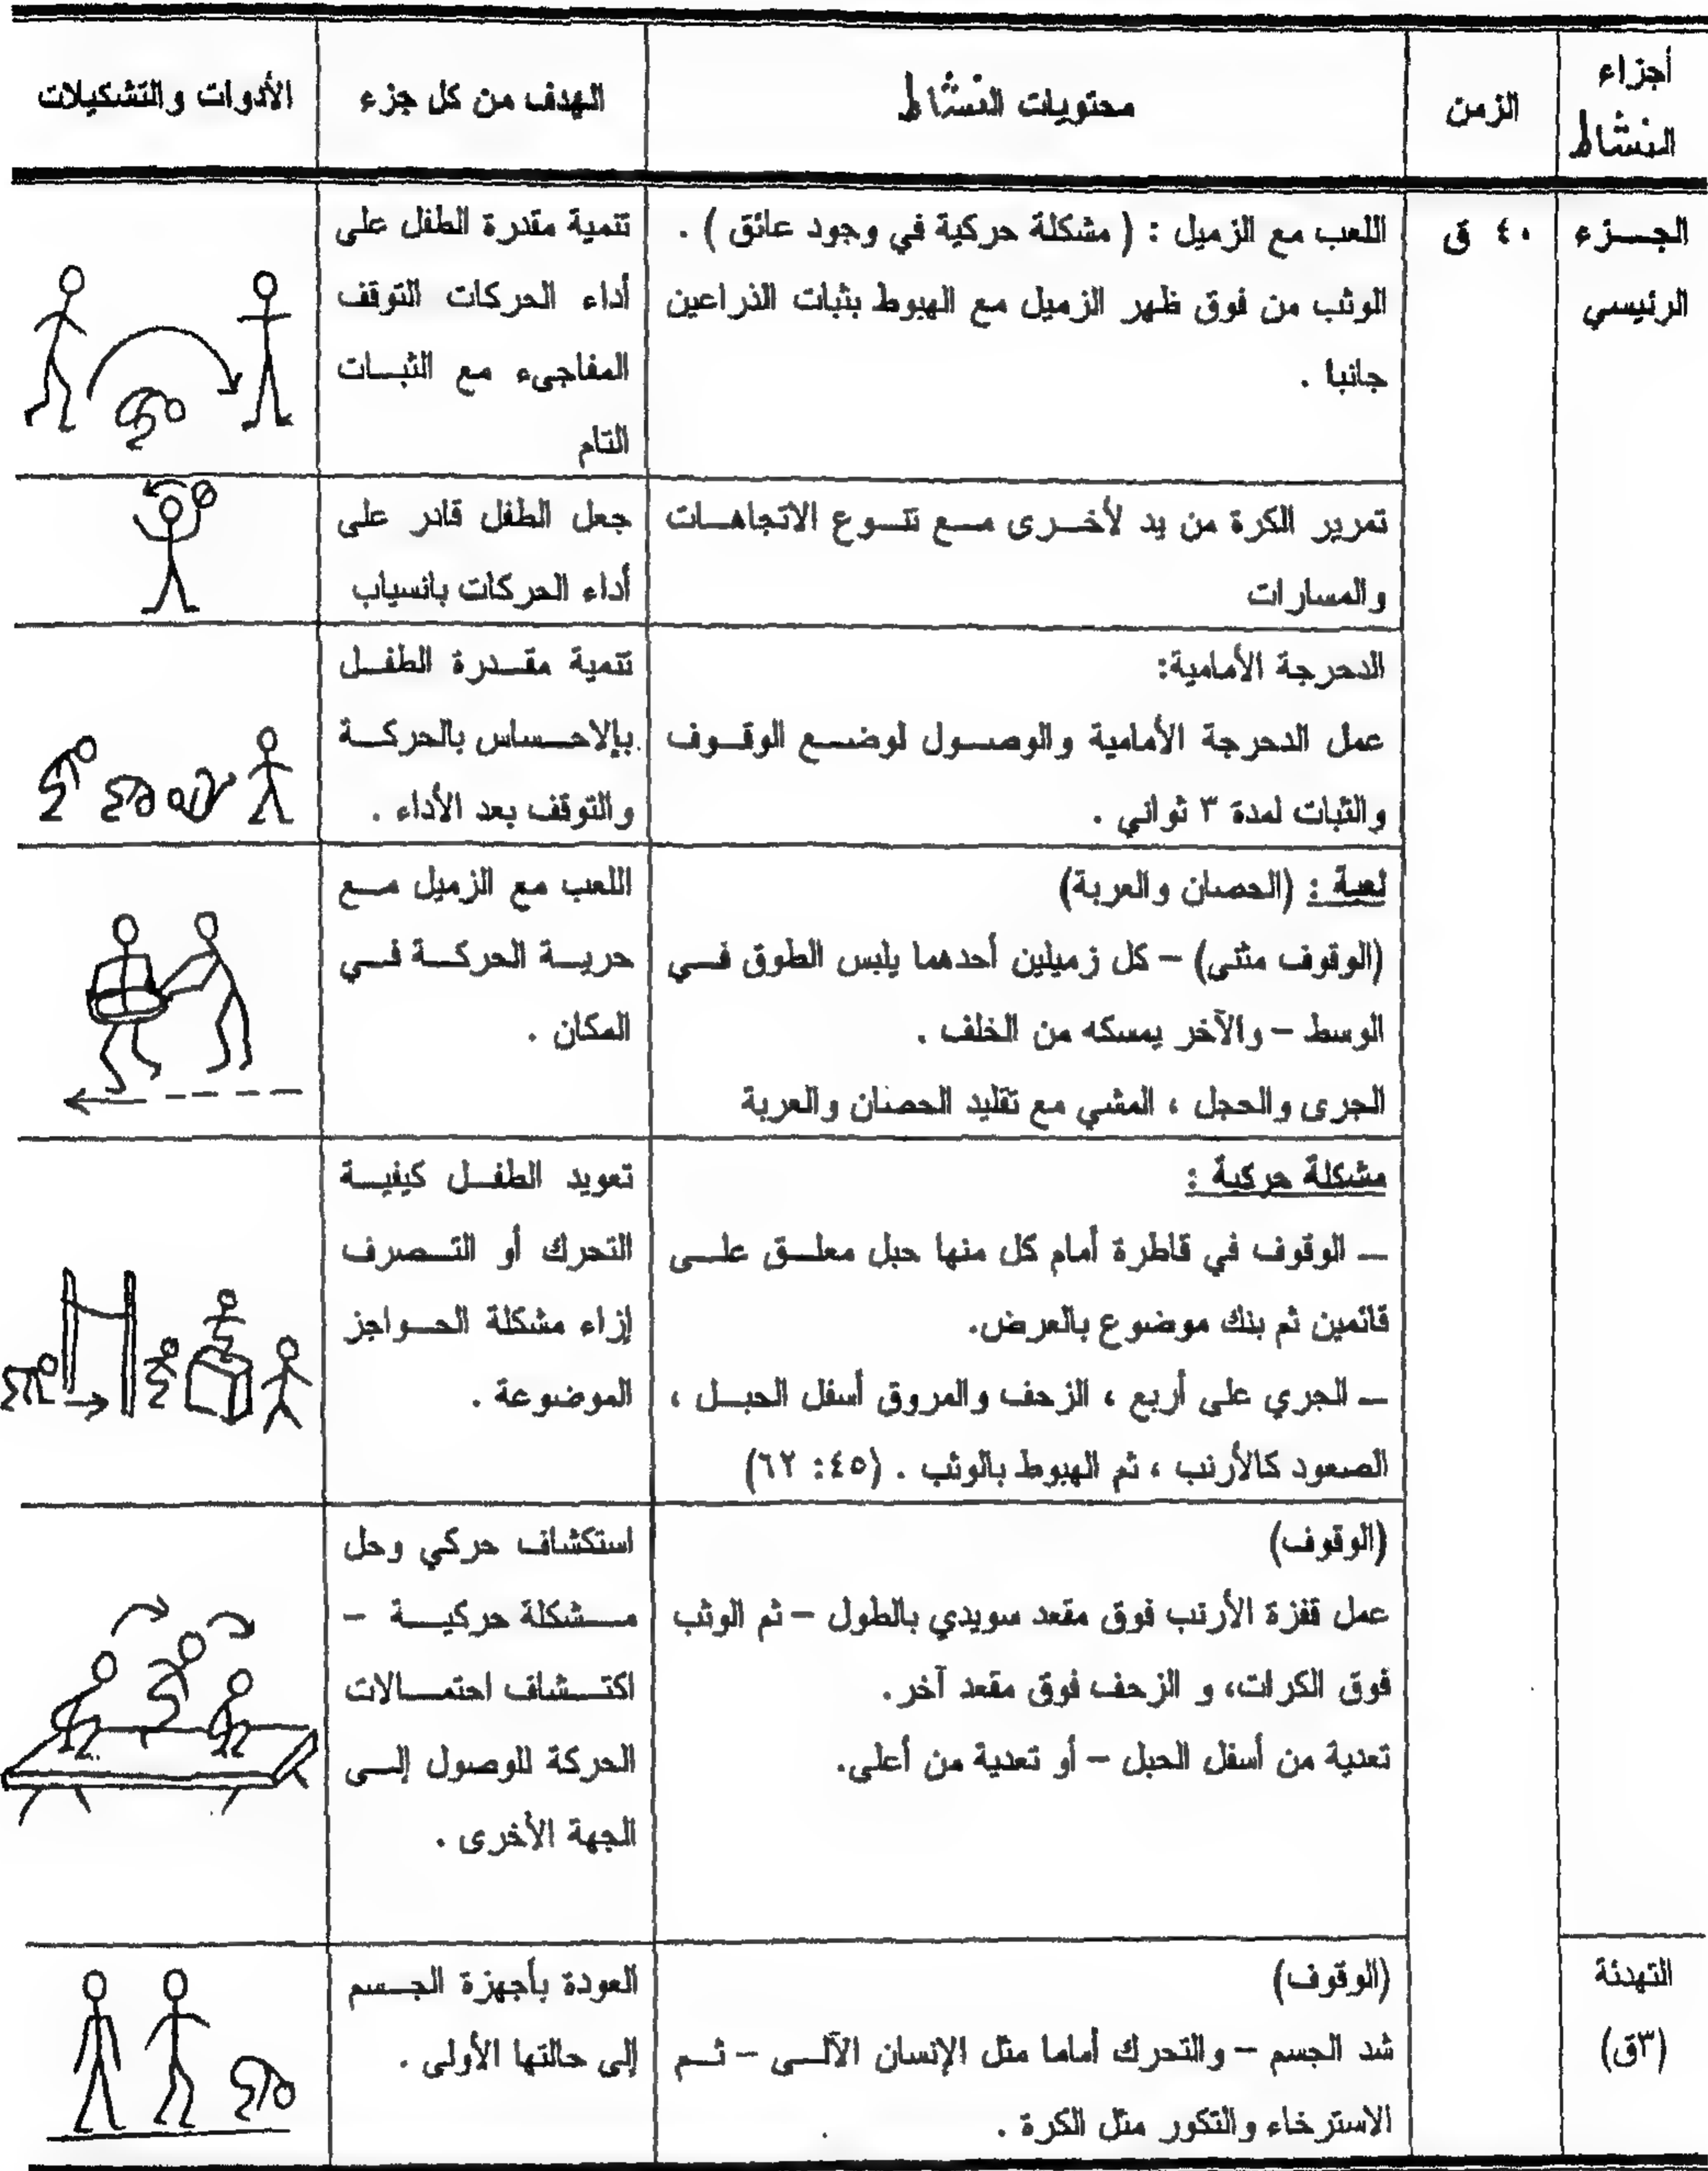 أجزاء النشاط | الزمن | محتويات النشاط | الهدف من كل جزء | الأدوات والتشكيلات
الجزء
الرئيسي
٤٠ ق
اللعب مع الزميل : ( مشكلة حركية في وجود عائق ) .
الوثب من فوق ظهر الزميل مع الهبوط بثبات الذراعين
جانبا .
تنمية مقدرة الطفل على
أداء الحركات التوقف
المفاجىء مع الثبات
التام
تمرير الكرة من يد لأخرى مع تنوع الاتجاهات
والمسارات
جعل الطفل قادر على
أداء الحركات بانسياب
الدحرجة الأمامية:
عمل الدحرجة الأمامية والوصول لوضع الوقوف
والثبات لمدة ٣ ثواني .
تنمية مقدرة الطفل
بإلاحساس بالحركة
والتوقف بعد الأداء .
لعبة : (الحصان والعربة)
(الوقوف مثنى) – كل زميلين أحدهما يلبس الطوق في
الوسط – والآخر يمسكه من الخلف .
الجرى والحجل ، المشي مع تقليد الحصان والعربة
اللعب مع الزميل مع
حرية الحركة في
المكان .
مشكلة حركية :
– الوقوف في قاطرة أمام كل منها حبل معلق على
قائمين ثم بنك موضوع بالعرض.
– الجري على أربع ، الزحف والمروق أسفل الحبل ،
الصعود كالأرنب ، ثم الهبوط بالوثب . (٤٥: ٦٢)
تعويد الطفل كيفية
التحرك أو التصرف
إزاء مشكلة الحواجز
الموضوعة .
(الوقوف)
عمل قفزة الأرنب فوق مقعد سويدي بالطول – ثم الوثب
فوق الكرات، و الزحف فوق مقعد آخر.
تعدية من أسفل الحبل – أو تعدية من أعلى.
استكشاف حركي وحل
مشكلة حركية –
اكتشاف احتمالات
الحركة للوصول إلى
الجهة الأخرى .
التهدئة
(٣ق)
(الوقوف)
شد الجسم – والتحرك أماما مثل الإنسان الآلى – ثم
الاسترخاء والتكور مثل الكرة .
العودة بأجهزة الجسم
إلى حالتها الأولى .